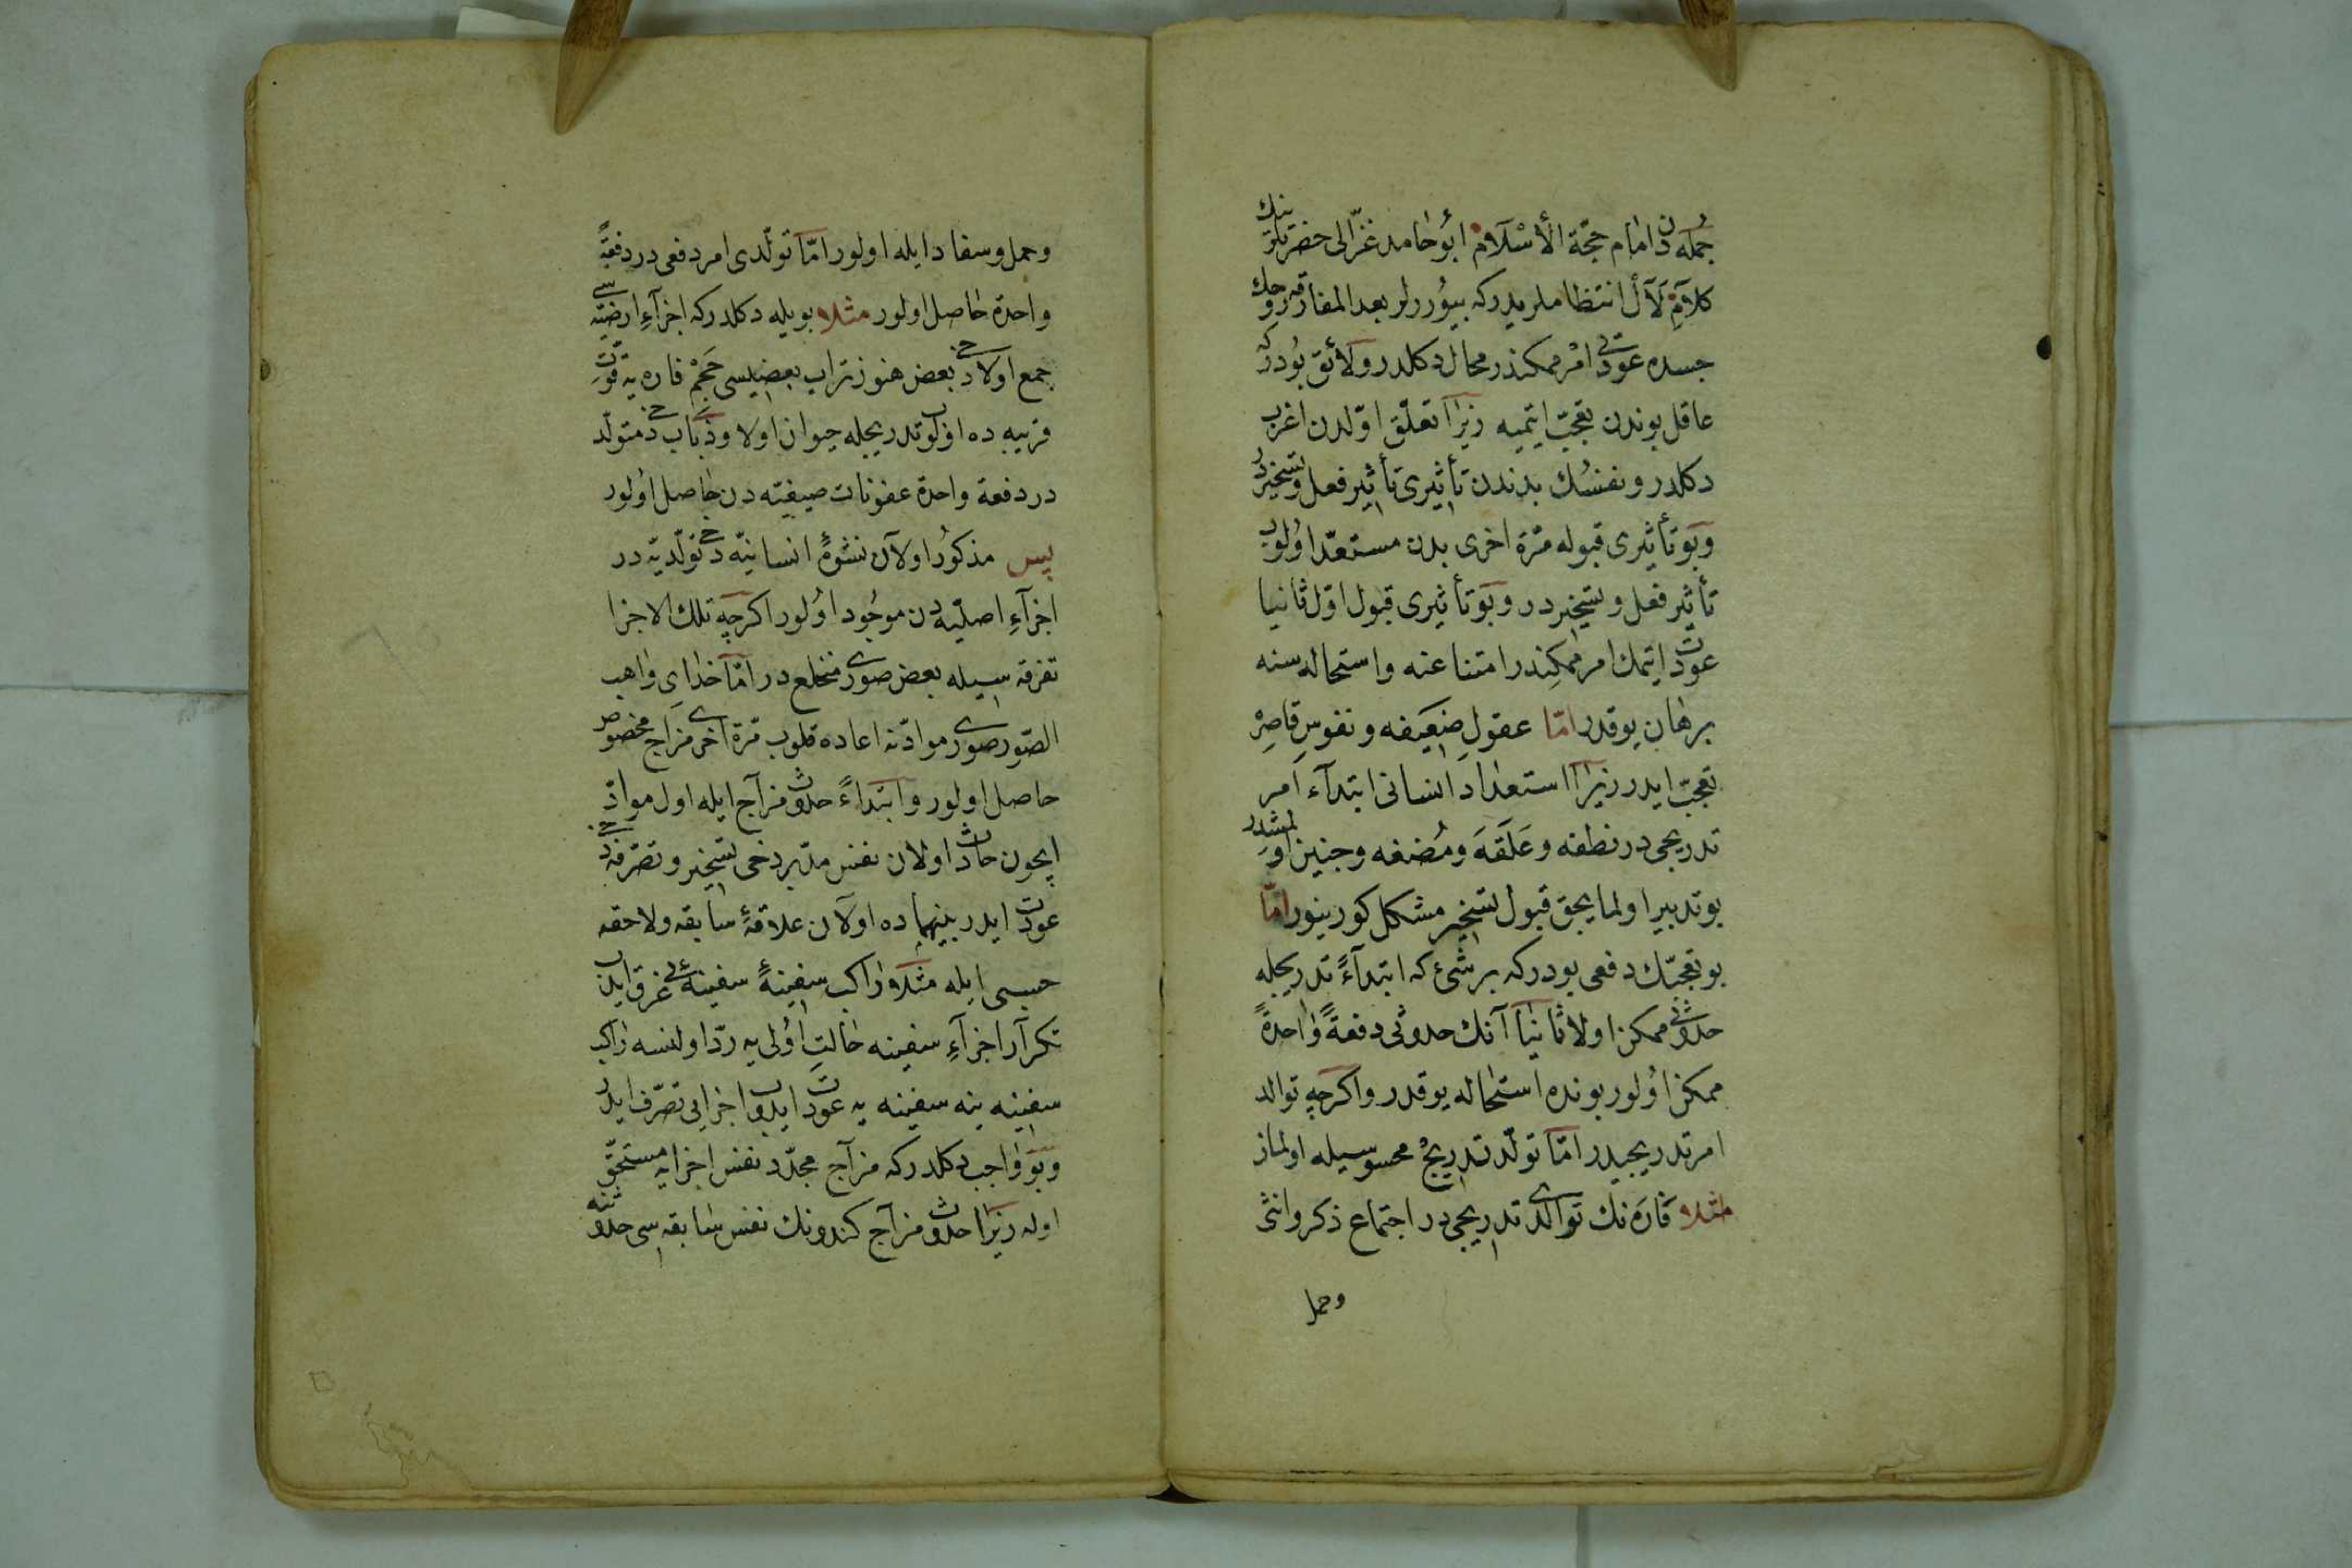 جمله دن امام حجة الأسلام ابو حامد غزالى حضرتلرينك
كلام لآل انتظاملريدركه بيوررلر بعد المفارقه روحك
جسده عودتى امر ممكندر محال دكلدر ولائق بودركه
عاقل بوندن تعجب ايتميه زيرا تعلق اولدن اغرب
دكلدر ونفسك بدندن تأثيرى تأثير فعل وتسخيردر
وبو تأثيرى قبوله مرة اخرى بدن مستعد اولوب
تأثير فعل وتسخيردر وبو تأثيرى قبول اول ثانيا
عودت ايتمك امر ممكندر امتناعنه واستحاله سنه
برهان يوقدر اما عقول ضعيفه ونفوس قاصره
تعجب ايدر زيرا استعداد انسانى ابتداء امر
تدريجى در نطفه وعلقه ومضغه وجنين اولمشدر
بو تدبير اولمايجق قبول تسخير مشكل كورينور اما
بو تعجبك دفعى بودركه بر شئ كه ابتداء تدريجله
حدوثى ممكن اولا ثانيا آنك حدوثى دفعة واحدة
ممكن اولور بونده استحاله يوقدر واكرچه توالد
امر تدريجيدر اما تولد تدريج محسوسيله اولماز
مثلا فاره نك توالدى تدريجى در اجتماع ذكر وانثى
وحمل
وحمل وسفاد ايله اولور اما تولدى امر دفعى در دفعة
واحدة حاصل اولور مثلا بويله دكلدركه اجزاء ارضيه سى
جمع اولادخى بعض هنوز تراب بعضيسى حجم فاره يه قوت
قريبه ده اولوب تدريجله حيوان اولا وذباب دخى متولد
در دفعة واحدة عفونات صيفيه دن حاصل اولور
پس مذكور اولان نشوة انسانيه دخى تولديه در
اجزاء اصليه دن موجود اولور اكرچه تلك الاجزا
تفرقه سيله بعض صورى منخلع در اما خداى واهب
الصور صورى موادنه اعاده قلوب مرة اخرى مزاج مخصوص
حاصل اولور وابتداء حدوث مزاج ايله اول مواد
ايچون حادث اولان نفس مدبر دخى تسخير وتصرفه دخى
عودت ايدر بينهما ده اولان علاقۀ سابقه ولاحقه
حسبى ايله مثلا راكب سفينة سفينه‌ئى غرق ايدن
تكرار اجزاء سفينه حالت اولى يه رد اولنسه راكب
سفينه ينه سفينه يه عودت ايدوب اجزايى تصرف ايدر
وبو واجب دكلدركه مزاج مجدد نفس اجزايه مستحق
اوله زيرا حدوث مزاج كندونك نفس سابقه سى حدوثنه